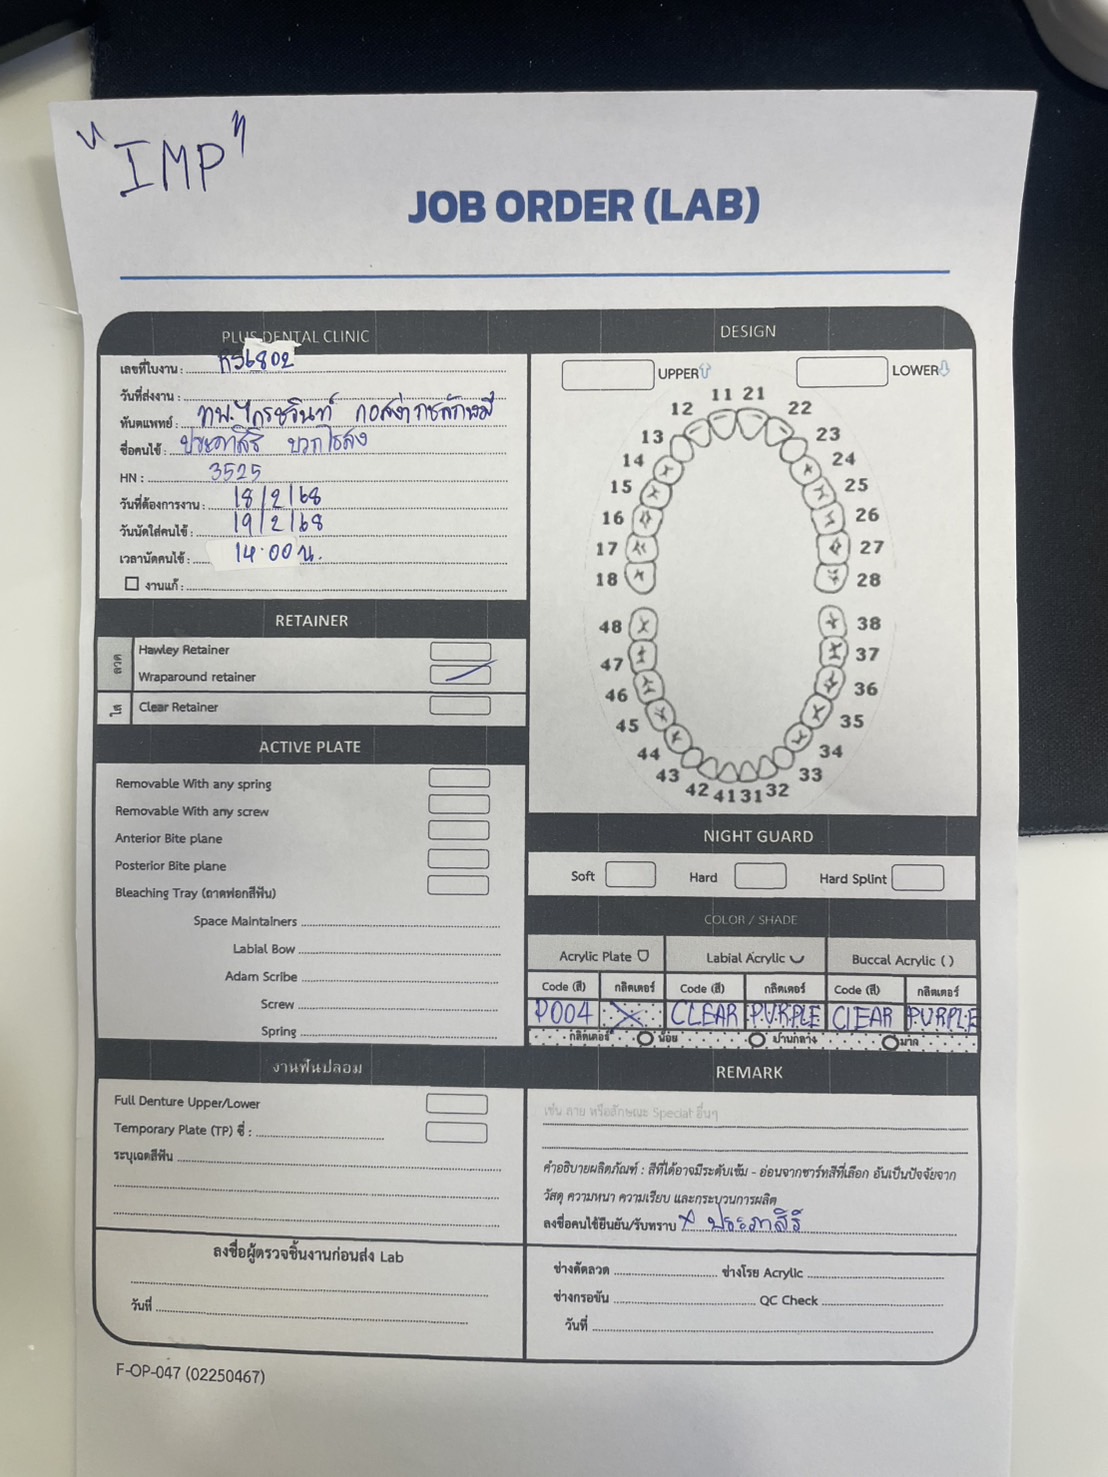 "IMP"
JOB ORDER (LAB)
PLUS DENTAL CLINIC
เลขที่ใบงาน :
วันที่ส่งงาน :
ทันตแพทย์ : ทพ.
ชื่อคนไข้ : ประภาสิริ
HN : 3525
วันที่ต้องการงาน : 18/2/68
วันนัดใส่คนไข้ : 19/2/68
เวลานัดคนไข้ : 14.00 น.
งานแก้ :
RETAINER
ลวด
Hawley Retainer
Wraparound retainer
ใส
Clear Retainer
ACTIVE PLATE
Removable With any spring
Removable With any screw
Anterior Bite plane
Posterior Bite plane
Bleaching Tray (ถาดฟอกสีฟัน)
Space Maintainers
Labial Bow
Adam Scribe
Screw
Spring
งานฟันปลอม
Full Denture Upper/Lower
Temporary Plate (TP) ซี่ :
ระบุเฉดสีฟัน
ลงชื่อผู้ตรวจชิ้นงานก่อนส่ง Lab
วันที่
DESIGN
UPPER LOWER
11 21
12 22
13 23
14 24
15 25
16 26
17 27
18 28
48 38
47 37
46 36
45 35
44 34
43 33
42 41 31 32
NIGHT GUARD
Soft Hard Hard Splint
COLOR / SHADE
Acrylic Plate Labial Acrylic Buccal Acrylic ( )
Code (สี) กลิตเตอร์ Code (สี) กลิตเตอร์ Code (สี) กลิตเตอร์
P004 X CLEAR PURPLE CLEAR PURPLE
กลิตเตอร์ น้อย ปานกลาง มาก
REMARK
เช่น ลาย หรือลักษณะ Special อื่นๆ
คำอธิบายผลิตภัณฑ์ : สีที่ได้อาจมีระดับเข้ม - อ่อนจากชาร์ทสีที่เลือก อันเป็นปัจจัยจาก
วัสดุ ความหนา ความเรียบ และกระบวนการผลิต
ลงชื่อคนไข้ยืนยัน/รับทราบ x ประภาสิริ
ช่างดัดลวด ช่างโรย Acrylic
ช่างกรอขัน QC Check
วันที่
F-OP-047 (02250467)